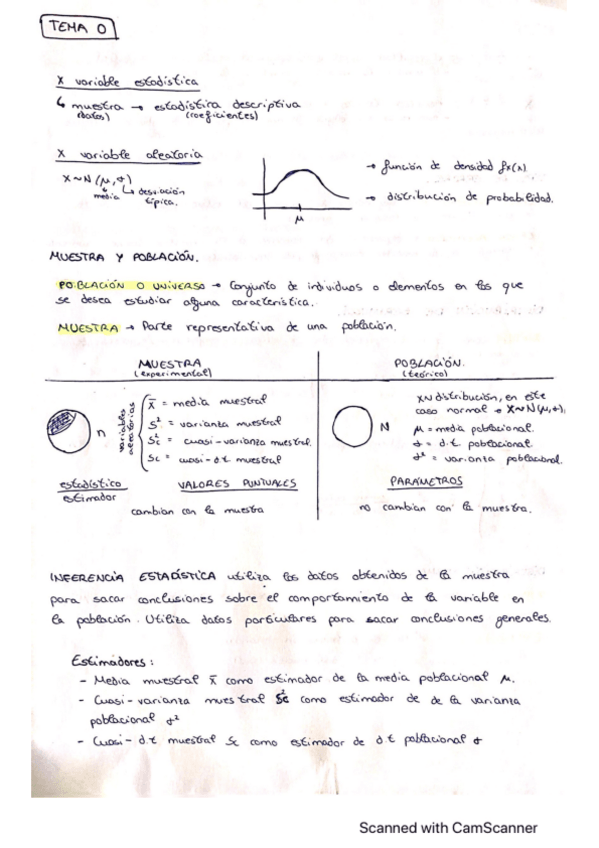 TEMA 0
X variable estadística
↳ muestra → estadística descriptiva
(datos) (coeficientes)
X variable aleatoria
X~N(μ,σ)
media
desviación típica.
μ
→ función de densidad fx(x)
→ distribución de probabilidad.
MUESTRA Y POBLACIÓN.
POBLACIÓN O UNIVERSO → Conjunto de individuos o elementos en los que
se desea estudiar alguna característica.
MUESTRA → Parte representativa de una población.
MUESTRA
(experimental)
n
variables aleatorias
x̄ = media muestral
S² = varianza muestral
Sc² = cuasi-varianza muestral.
Sc = cuasi-d.t muestral
estadístico
estimador
VALORES PUNTUALES
cambian con la muestra
POBLACIÓN.
(teórico)
N
X~distribución, en este
caso normal → X~N(μ,σ).
μ = media poblacional.
σ = d.t. poblacional.
σ² = varianza poblacional.
PARAMETROS
no cambian con la muestra.
INFERENCIA ESTADÍSTICA utiliza los datos obtenidos de la muestra
para sacar conclusiones sobre el comportamiento de la variable en
la población. Utiliza datos particulares para sacar conclusiones generales.
Estimadores:
- Media muestral x̄ como estimador de la media poblacional μ.
- Cuasi-varianza muestral Sc² como estimador de de la varianza
poblacional σ²
- Cuasi-d.t muestral Sc como estimador de d.t poblacional σ
Scanned with CamScanner